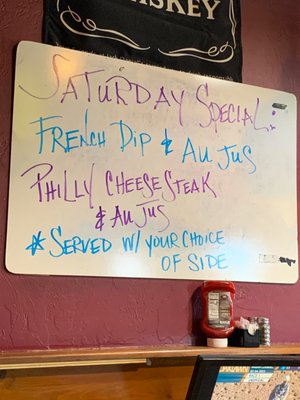 WHISKEY
SATURDAY SPECIAL:
FRENCH DIP & AU JUS
PHILLY CHEESE STEAK
& AU JUS
* SERVED W/ YOUR CHOICE
OF SIDE